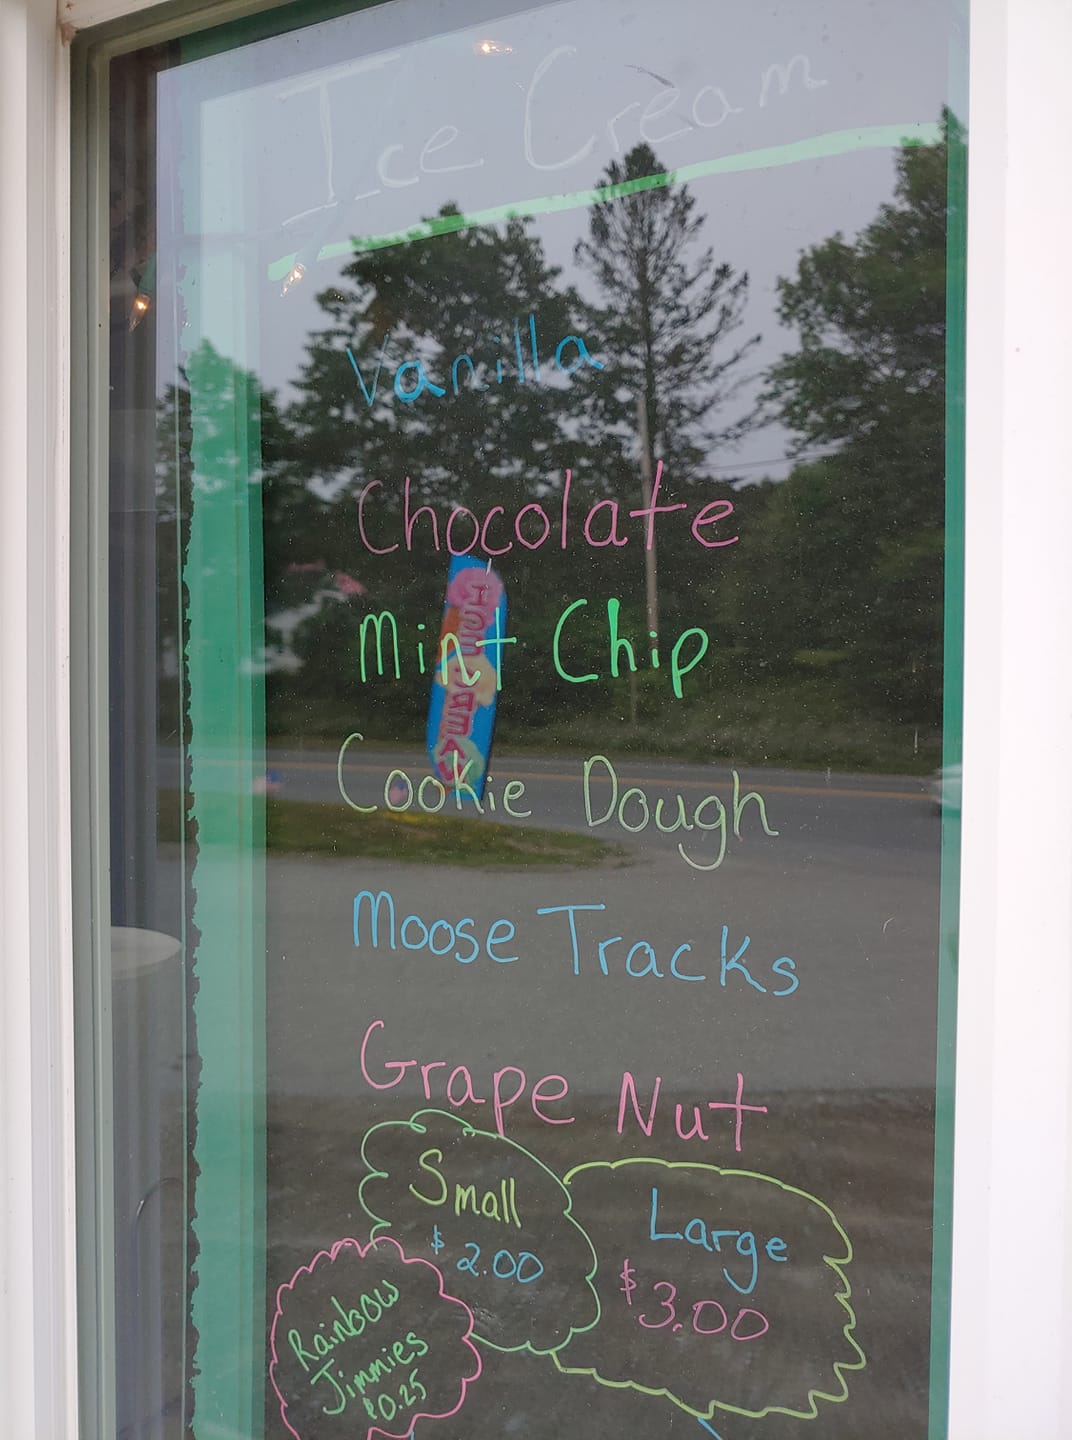 Ice Cream
Vanilla
Chocolate
Mint Chip
Cookie Dough
Moose Tracks
Grape Nut
Small
$2.00
Large
$3.00
Rainbow
Jimmies
$0.25